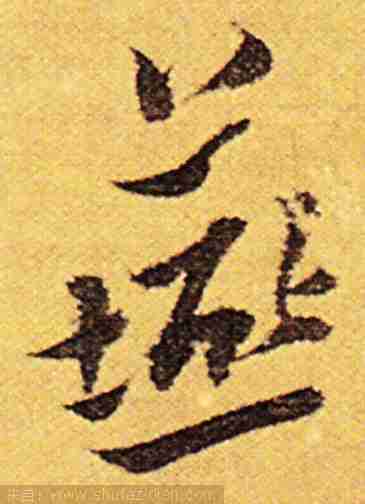 燕
来自：www.shufazidian.com